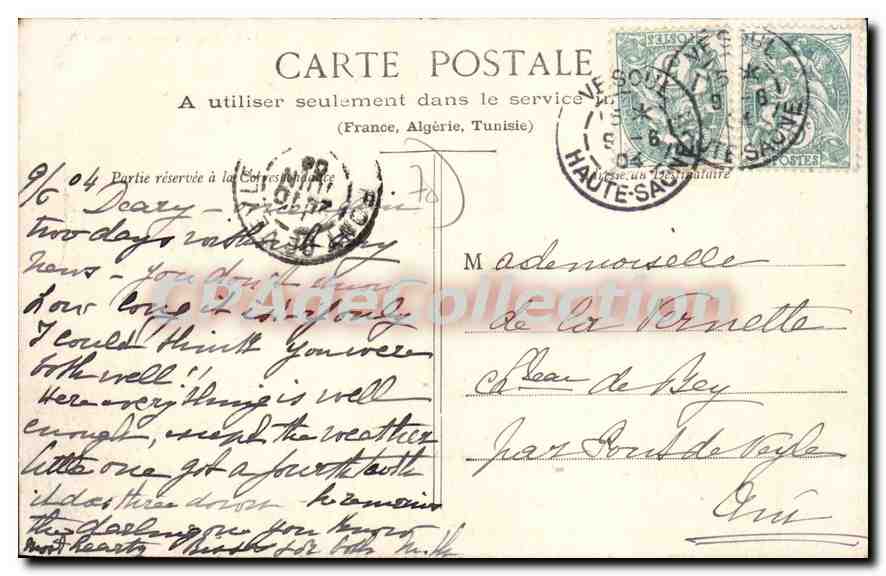 CARTE POSTALE
A utiliser seulement dans le service
(France, Algérie, Tunisie)
Partie réservée à la Correspondance
du Destinataire
VESOUL
15 *
9 - 6
04
HAUTE-SAONE
VESOUL
15 *
9 6
HAUTE-SAONE
POSTES
70
CPAdeCollection
9/6 04 Deary - once again
two days without any
news - you don't know
how long it is. if only
I could think you were
both well!!
Here everything is well
enough, except the weather
little one got a fourth tooth
it does three down - he remains
the darling one you know
most hearty kisses for both
Mademoiselle
de la Vernette
Chateau de Bey
par Pont de Veyle
Ain